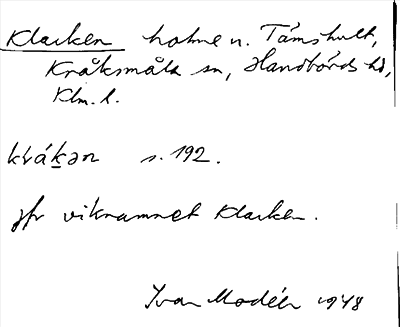 Klacken holme n. Tämshult,
Kråksmåla sn, Handbörds hd,
Klm. l.
klákən s. 192.
jfr viknamnet Klacken.
Ivar Modéer 1948